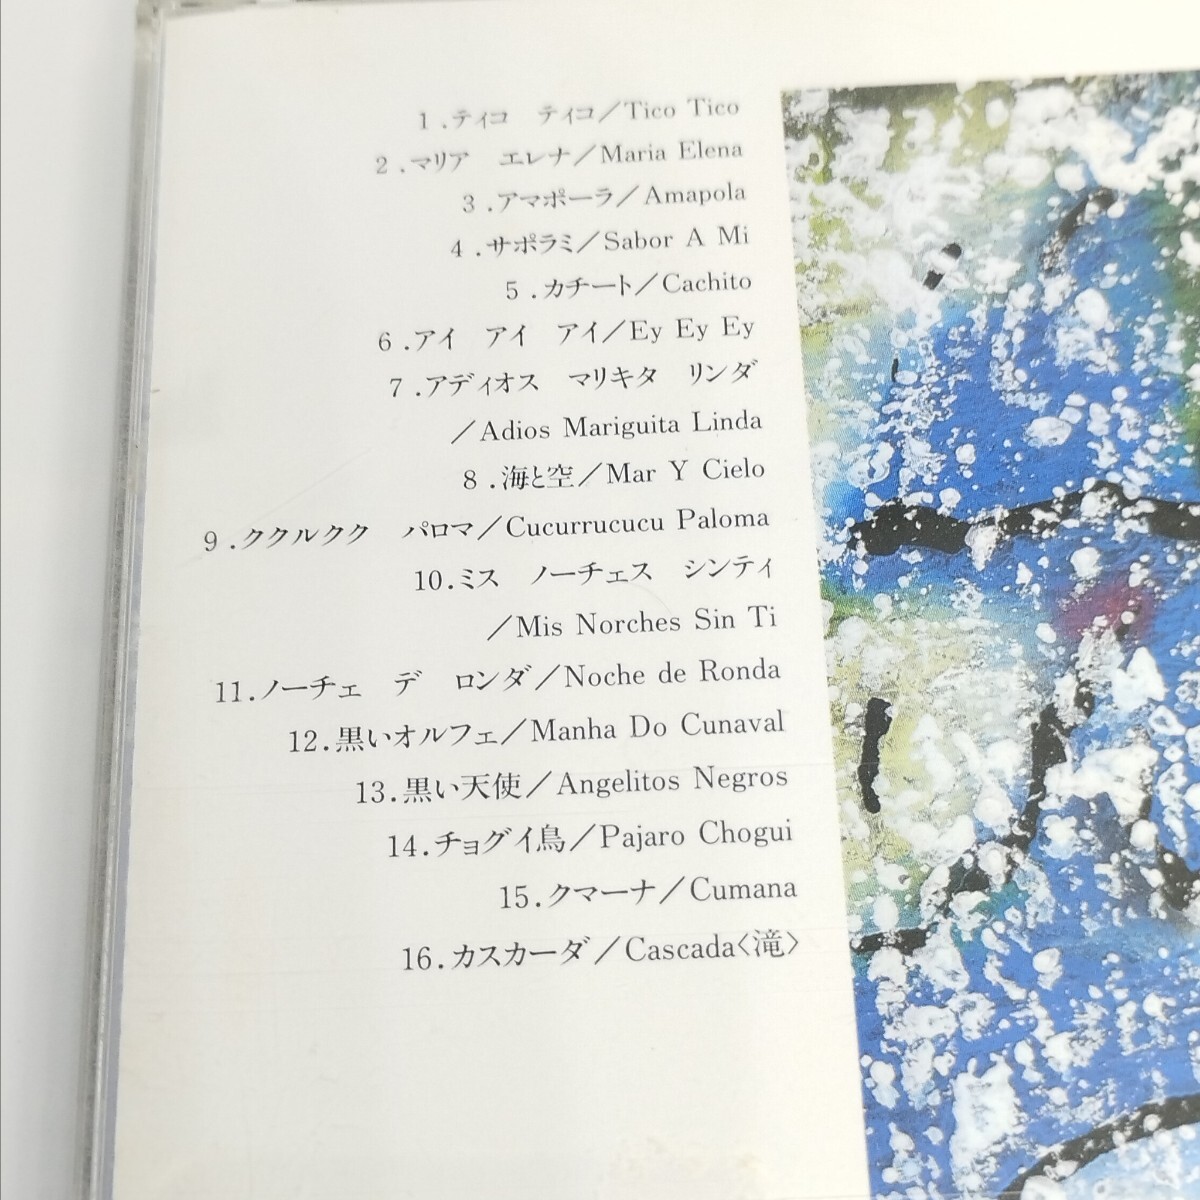 1.ティコ　ティコ／Tico Tico
2.マリア　エレナ／Maria Elena
3.アマポーラ／Amapola
4.サボラミ／Sabor A Mi
5.カチート／Cachito
6.アイ　アイ　アイ／Ey Ey Ey
7.アディオス　マリキタ　リンダ
／Adios Mariguita Linda
8.海と空／Mar Y Cielo
9.ククルクク　パロマ／Cucurrucucu Paloma
10.ミス　ノーチェス　シンティ
／Mis Norches Sin Ti
11.ノーチェ　デ　ロンダ／Noche de Ronda
12.黒いオルフェ／Manha Do Cunaval
13.黒い天使／Angelitos Negros
14.チョグイ鳥／Pajaro Chogui
15.クマーナ／Cumana
16.カスカーダ／Cascada〈滝〉